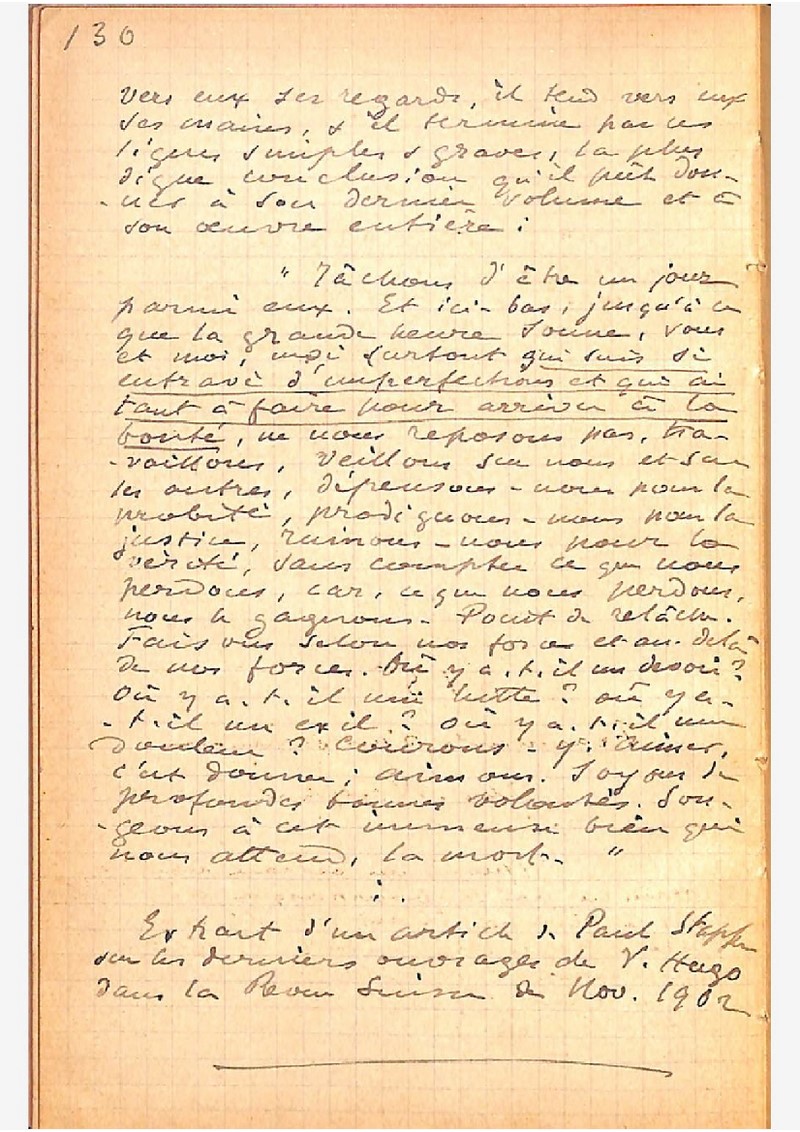 130
vers eux ses regards, il tend vers eux
ses mains, & il termine par ces
lignes simples & graves, la plus
digne conclusion qu'il pût don-
-ner à son dernier volume et à
son œuvre entière :
" Tâchons d'être un jour
parmi eux. Et ici-bas, jusqu'à ce
que la grande heure sonne, vous
et moi, moi surtout qui suis si
entravé d'imperfections et qui ai
tant à faire pour arriver à la
bonté, ne nous reposons pas, tra-
-vaillons, veillons sur nous et sur
les autres, dépensons-nous pour la
probité, prodiguons-nous pour la
justice, ruinons-nous pour la
vérité, sans compter ce que nous
perdons, car, ce que nous perdons,
nous le gagnons. Point de relâche.
Faisons selon nos forces et au-delà
de nos forces. Où y a-t-il un devoir ?
Où y a-t-il une lutte ? où y a-
-t-il un exil ? où y a-t-il une
douleur ? Courons-y. Aimer,
c'est donner ; aimons. Soyons de
profondes bonnes volontés. Son-
-geons à cet immense bien qui
nous attend, la mort. "
Extrait d'un article de Paul Stapfer
sur les derniers ouvrages de V. Hugo
dans la Revue Suisse de Nov. 1902